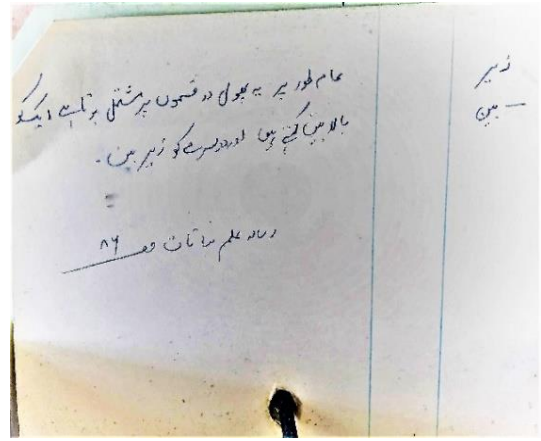 زیر
– بین
عام طور پر یہ پھول دو قسموں پر مشتمل ہوتا ہے ایک کو
بالا بین کہتے ہیں اور دوسرے کو زیر بین۔
رسالہ علم نباتات ص ۸۶